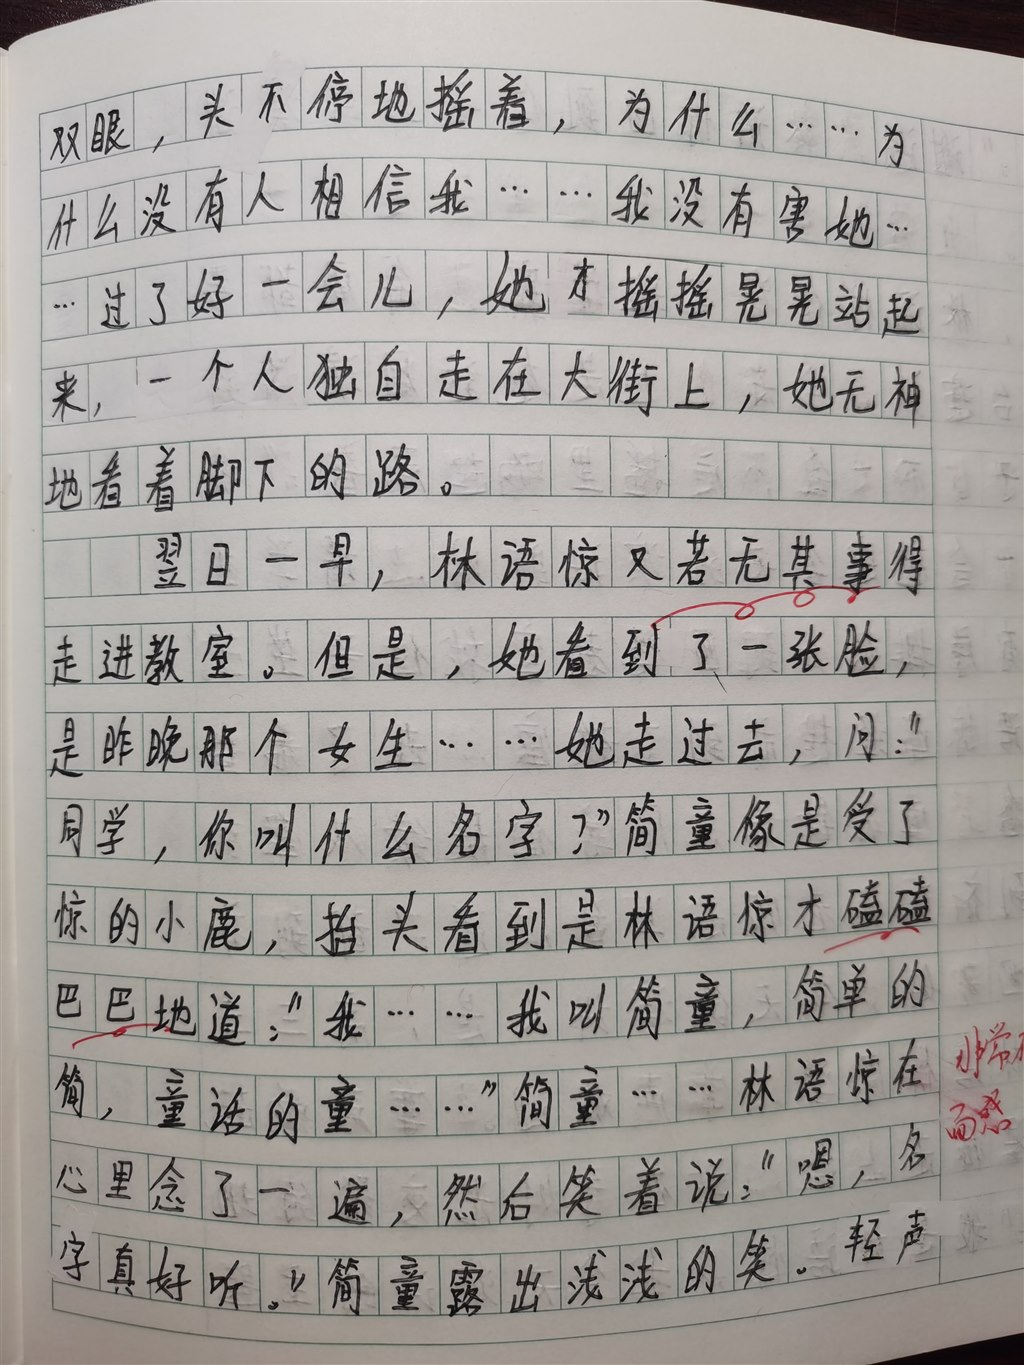 双眼，头不停地摇着，为什么……为
什么没有人相信我……我没有害她…
…过了好一会儿，她才摇摇晃晃站起
来，一个人独自走在大街上，她无神
地看着脚下的路。
翌日一早，林语惊又若无其事得
走进教室。但是，她看到了一张脸，
是昨晚那个女生……她走过去，问：“
同学，你叫什么名字？”简童像是受了
惊的小鹿，抬头看到是林语惊才磕磕
巴巴地道：“我……我叫简童，简单的
简，童话的童……”简童……林语惊在
心里念了一遍，然后笑着说：“嗯，名
字真好听。”简童露出浅浅的笑。轻声
非常